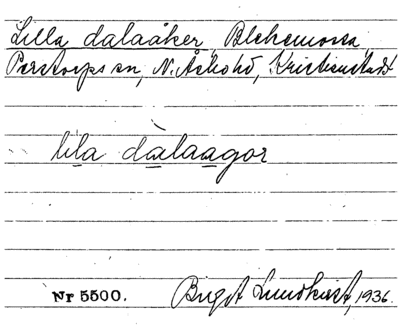 Lilla dalaåker, Blekemossa,
Perstorps sn, N. Åsbo hd, Kristianstads
lila dalaagor
Nr 5500. Birgit Lundkvist, 1936.